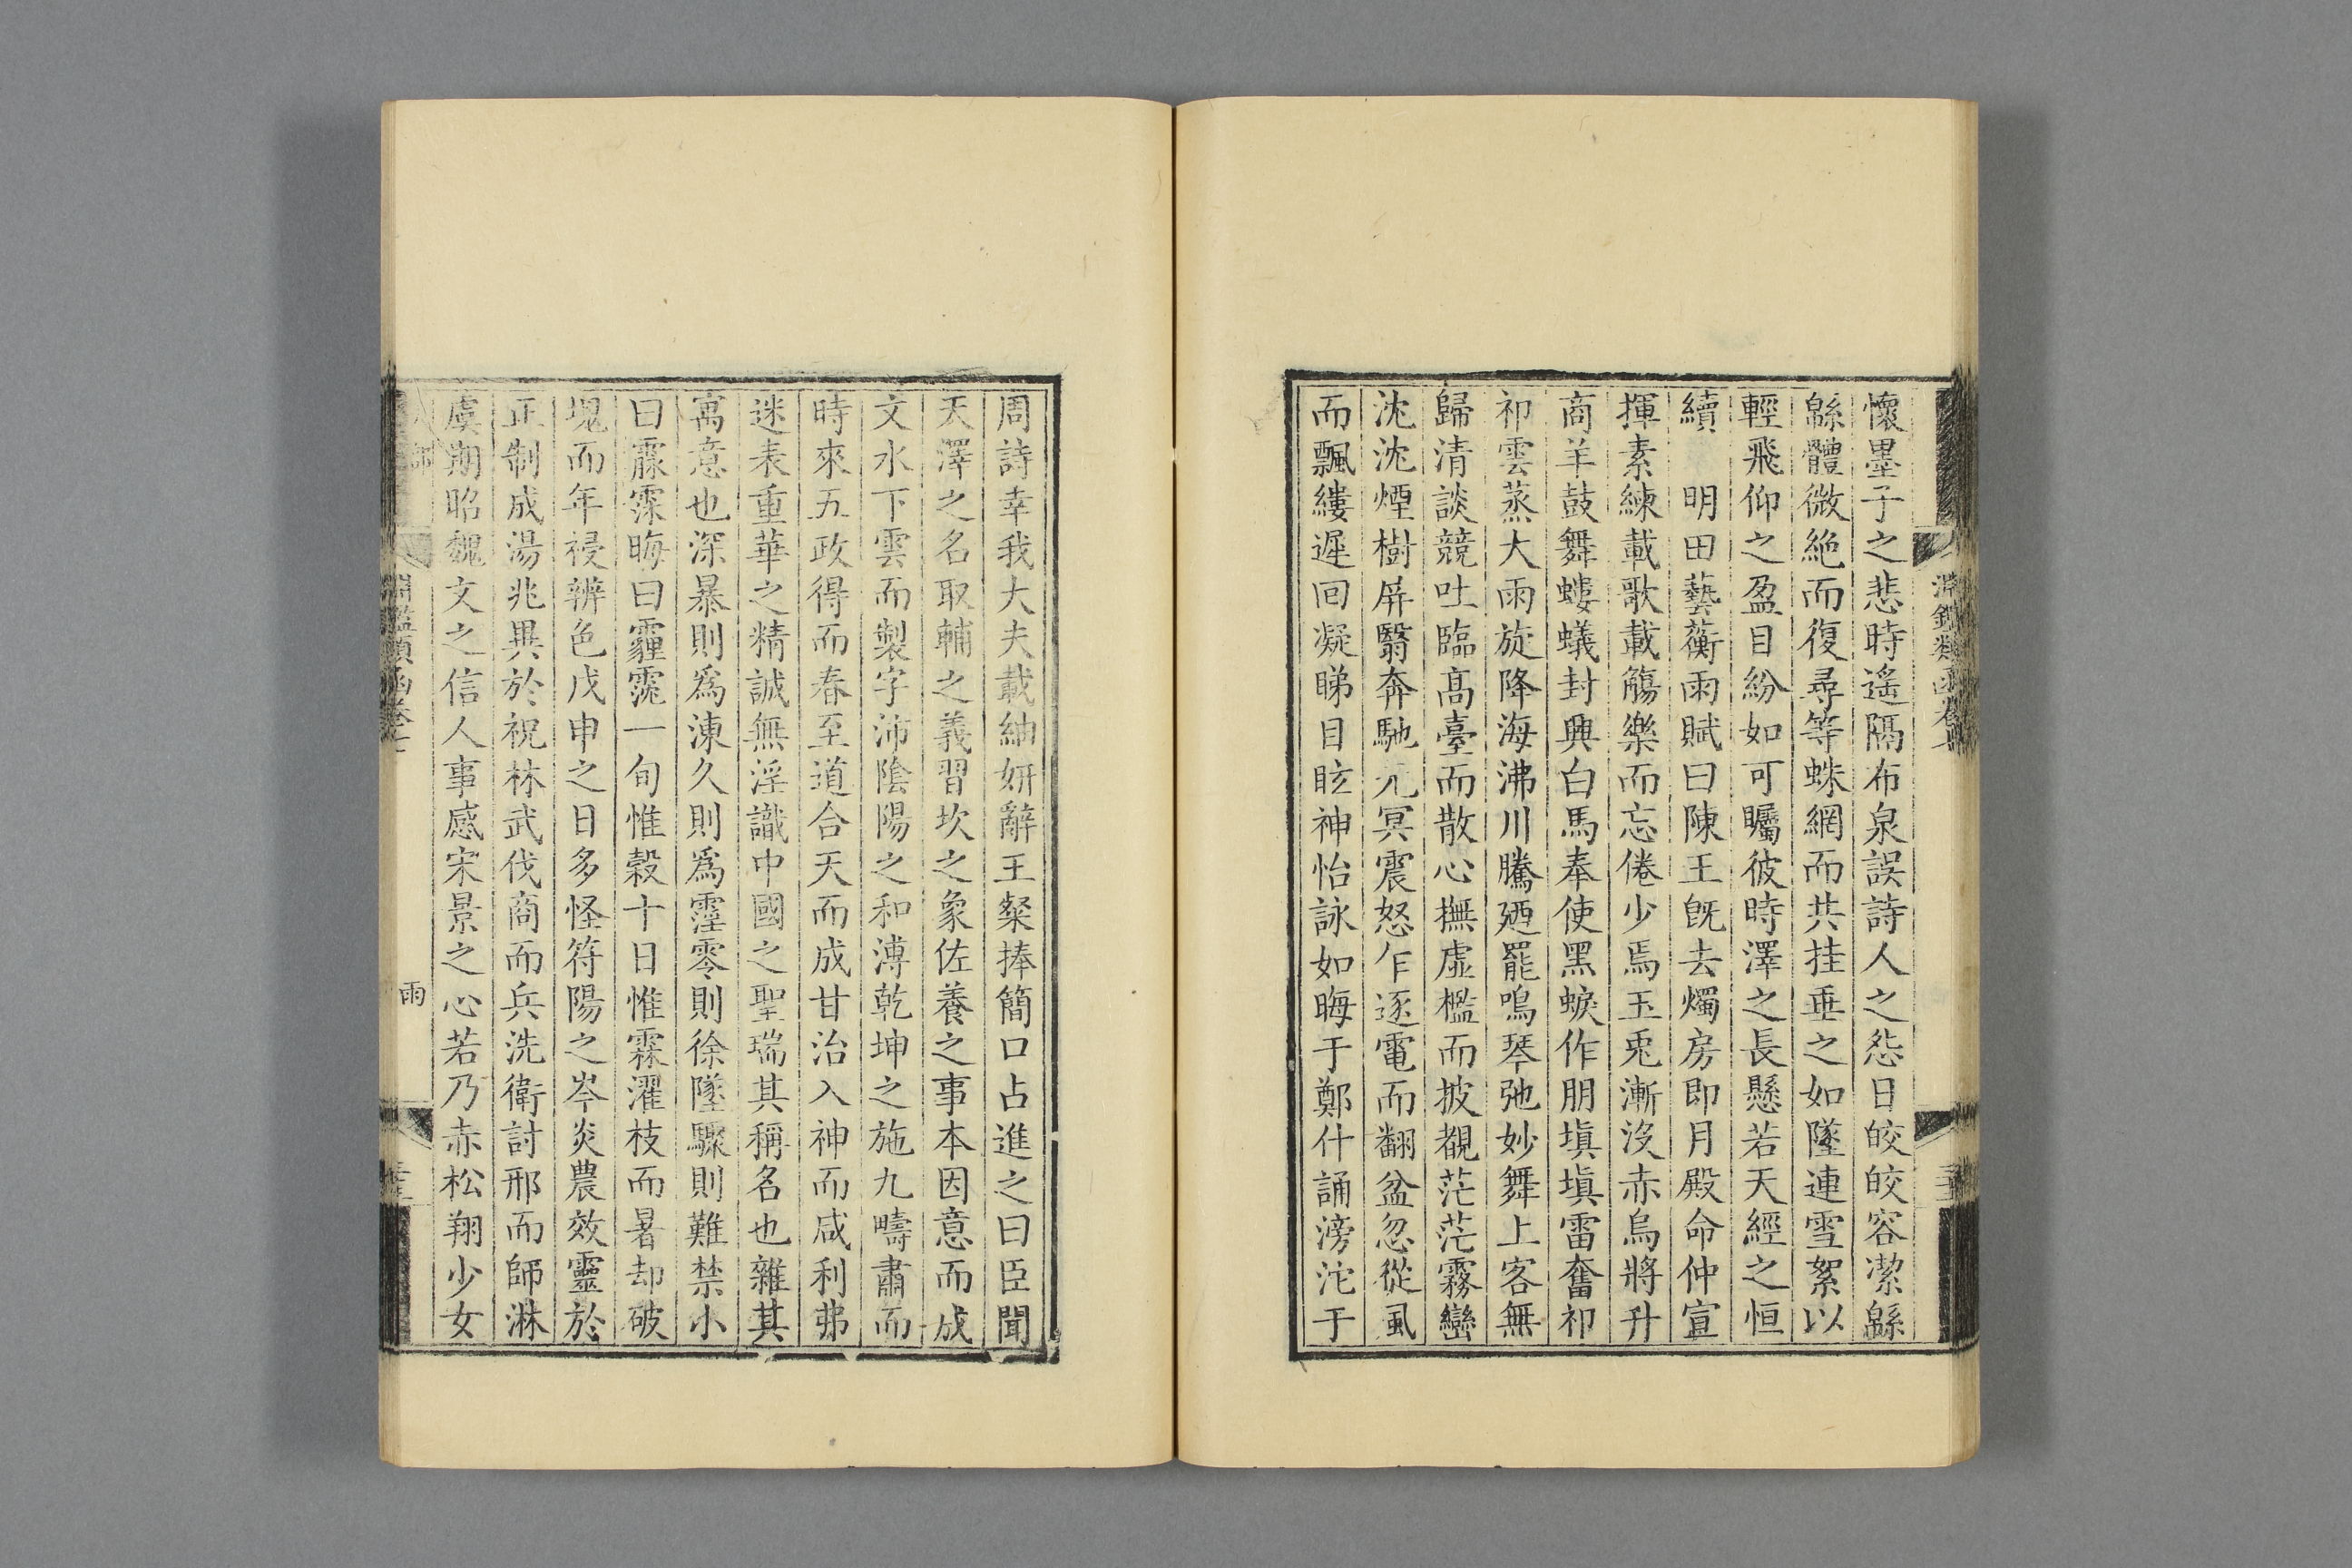 淵鑑類函卷七
懷墨子之悲時遙隔布泉誤詩人之怨日皎皎容潔緜
緜體微絶而復尋等蛛網而共挂垂之如墜連雪絮以
輕飛仰之盈目紛如可矚彼時澤之長懸若天經之恒
續 明田藝蘅雨賦曰陳王旣去燭房即月殿命仲宣
揮素練載歌載觴樂而忘倦少焉玉兎漸沒赤烏將升
商羊鼓舞螻蟻封興白馬奉使黑蜧作朋塡塡雷奮祁
祁雲蒸大雨旋降海沸川騰廼罷鳴琴弛妙舞上客無
歸清談競吐臨髙臺而散心撫虛檻而披覩茫茫霧巒
沈沈煙樹屏翳奔馳元冥震怒乍逐電而翻盆忽從風
而飄縷遲回凝睇目眩神怡詠如晦于鄭什誦滂沱于
周詩幸我大夫載紬妍辭王粲捧簡口占進之曰臣聞
天澤之名取輔之義習坎之象佐養之事本因意而成
文水下雲而製字沛隂陽之和溥乾坤之施九疇肅而
時來五政得而春至道合天而成甘治入神而咸利弗
迷表重華之精誠無淫識中國之聖瑞其稱名也雜其
寓意也深暴則爲涷久則爲霪零則徐墜驟則難禁小
曰霢霂晦曰霾霃一旬惟穀十日惟霖濯枝而暑却破
塊而年祲辨色戊申之日多怪符陽之岑炎農效靈於
正制成湯兆異於祝林武伐商而兵洗衛討邢而師淋
虞期昭魏文之信人事感宋景之心若乃赤松翔少女
淵鑑類函卷七
雨